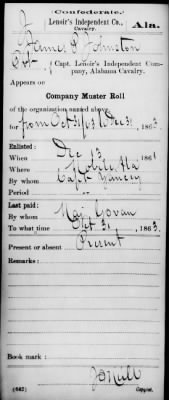 (Confederate.)
J Lenoir's Independent Co., Ala.
Cavalry.
James S Johnston
Pvt, Capt. Lenoir's Independent Com-
pany, Alabama Cavalry.
Appears on
Company Muster Roll
of the organization named above,
for from Oct 31 to Dec 31, 1863.
Enlisted:
When Dec 13, 1861
Where Mobile, Ala
By whom Capt Yancey
Period
Last paid:
By whom Maj Govan
To what time Oct 31, 1863.
Present or absent Present
Remarks:
Book mark:
(642) Copyist.